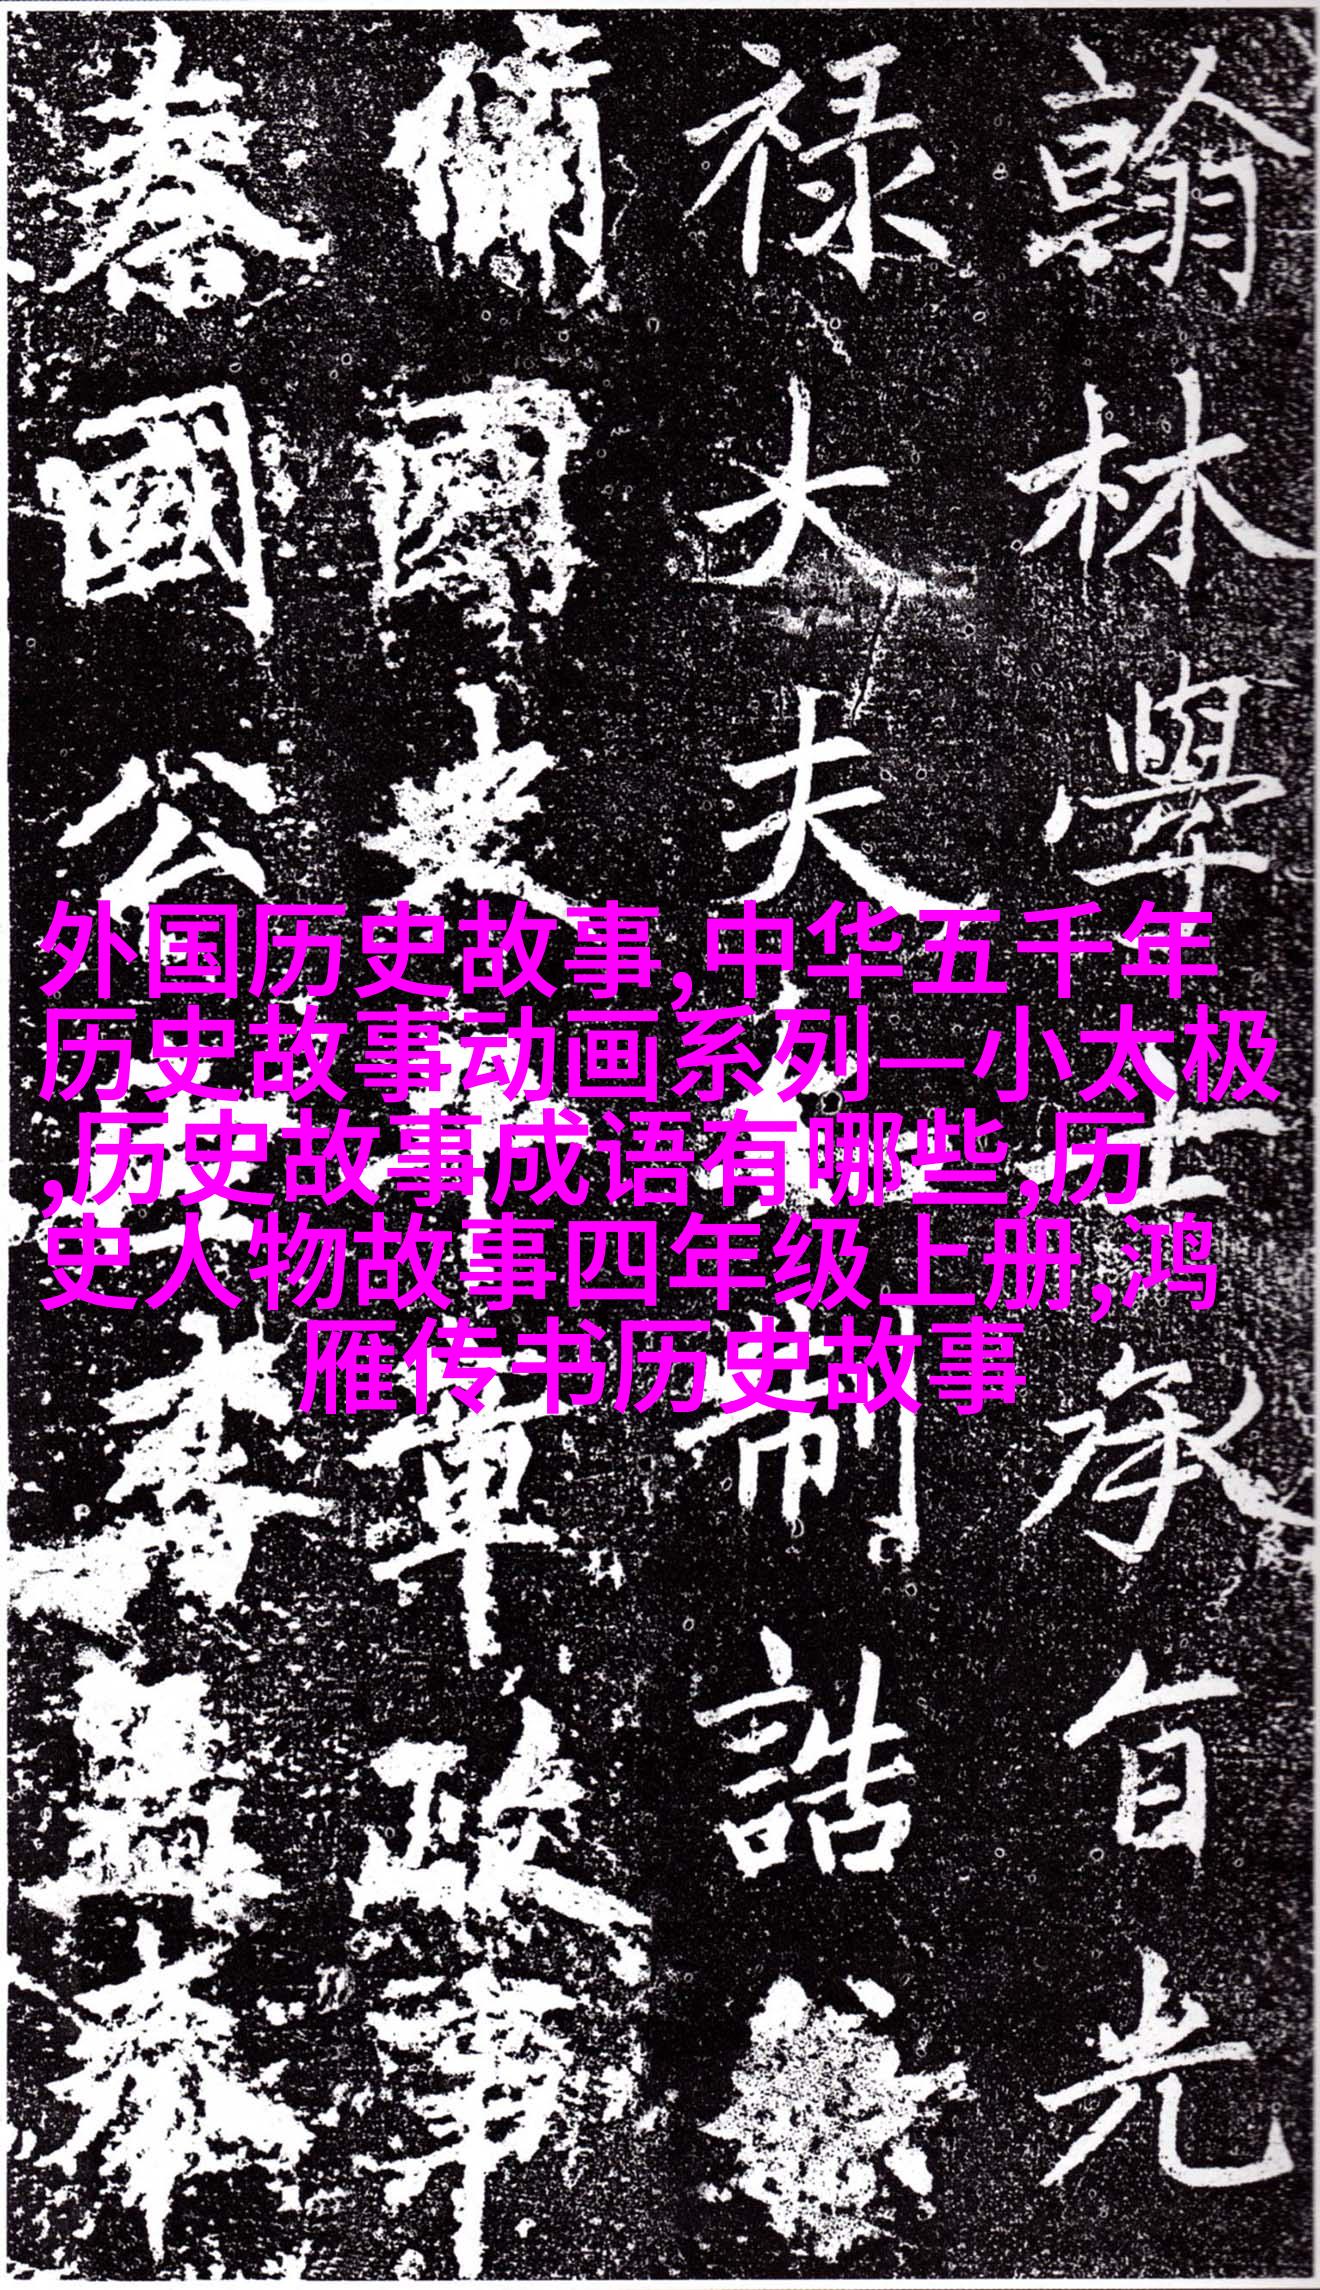 翰林學士承旨光
禄大夫制誥
脩國史軍政事
秦國公李奉
外国历史故事,中华五千年
历史故事动画系列一小太极
,历史故事成语有哪些,历
史人物故事四年级上册,鸿
雁传书历史故事